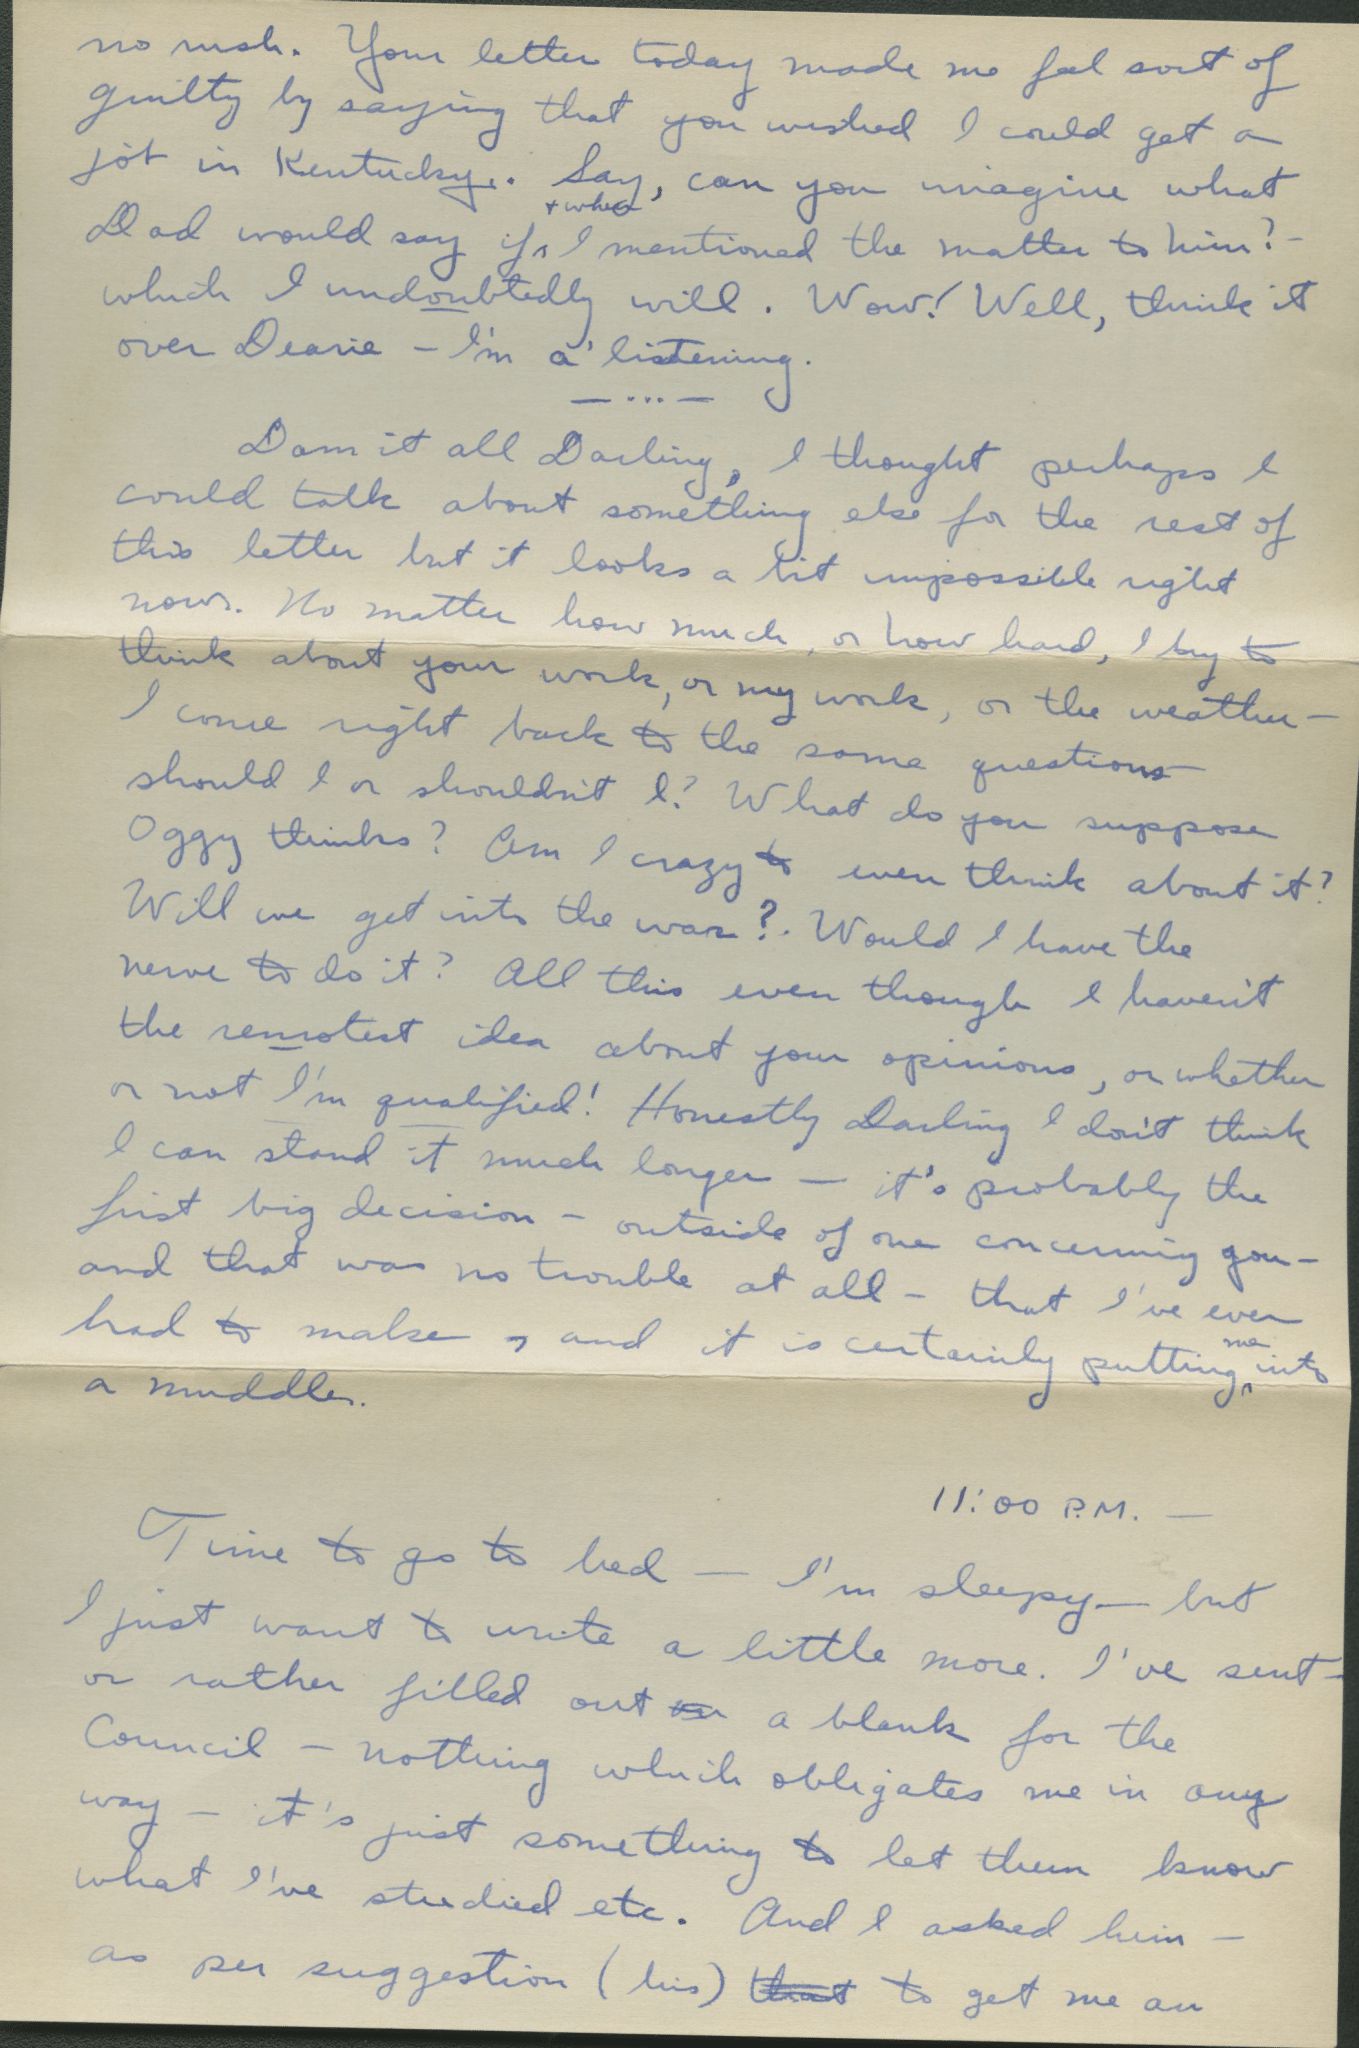 no rush. Your letter today made me feel sort of
guilty by saying that you wished I could get a
job in Kentucky. Say, can you imagine what
+ when
Dad would say if ^ I mentioned the matter to him? -
which I undoubtedly will. Wow! Well, think it
over Dearie - I'm a' listening.
— ... —
Dam it all Darling, I thought perhaps I
could talk about something else for the rest of
this letter but it looks a bit impossible right
now. No matter how much, or how hard, I try to
think about your work, or my work, or the weather -
I come right back to the same questions
should I or shouldn't I? What do you suppose
Oggy thinks? Am I crazy to even think about it?
Will we get into the war?. Would I have the
nerve to do it? All this even though I haven't
the remotest idea about your opinions, or whether
or not I'm qualified! Honestly Darling I don't think
I can stand it much longer — it's probably the
first big decision - outside of one concerning you -
and that was no trouble at all - that I've ever
had to make, and it is certainly putting ^ me into
a muddle.
11:00 P.M. —
Time to go to bed — I'm sleepy — but
I just want to write a little more. I've sent -
or rather filled out a blank for the
Council - nothing which obligates me in any
way - it's just something to let them know
what I've studied etc. And I asked him -
as per suggestion (his) that to get me an